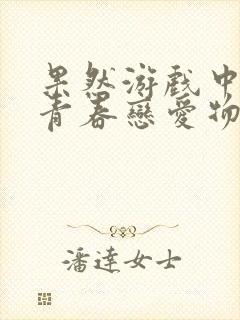 果然游戏中
青春戀愛物
潘達女士